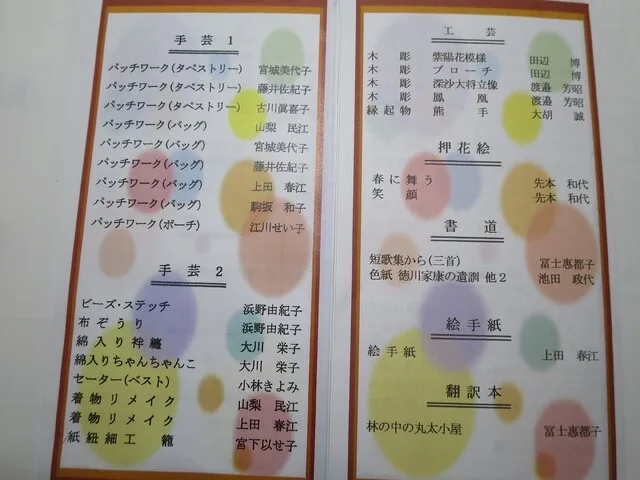 手芸１
パッチワーク(タペストリー) 宮城美代子
パッチワーク(タペストリー) 藤井佐紀子
パッチワーク(タペストリー) 古川眞喜子
パッチワーク(バッグ) 山梨 民江
パッチワーク(バッグ) 宮城美代子
パッチワーク(バッグ) 藤井佐紀子
パッチワーク(バッグ) 上田 春江
パッチワーク(バッグ) 駒坂 和子
パッチワーク(ポーチ) 江川せい子
手芸２
ビーズ・ステッチ 浜野由紀子
布ぞうり 浜野由紀子
綿入り袢纏 大川 栄子
綿入りちゃんちゃんこ 大川 栄子
セーター(ベスト) 小林きよみ
着物リメイク 山梨 民江
着物リメイク 上田 春江
紙紐細工 籠 宮下以せ子
工芸
木彫 紫陽花模様 田辺 博
木彫 ブローチ 田辺 博
木彫 深沙大将立像 渡邉 芳昭
木彫 鳳凰 渡邉 芳昭
縁起物 熊手 大胡 誠
押花絵
春に舞う 先本 和代
笑顔 先本 和代
書道
短歌集から(三首) 冨士惠都子
色紙 徳川家康の遺訓 他２ 池田 政代
絵手紙
絵手紙 上田 春江
翻訳本
林の中の丸太小屋 冨士惠都子